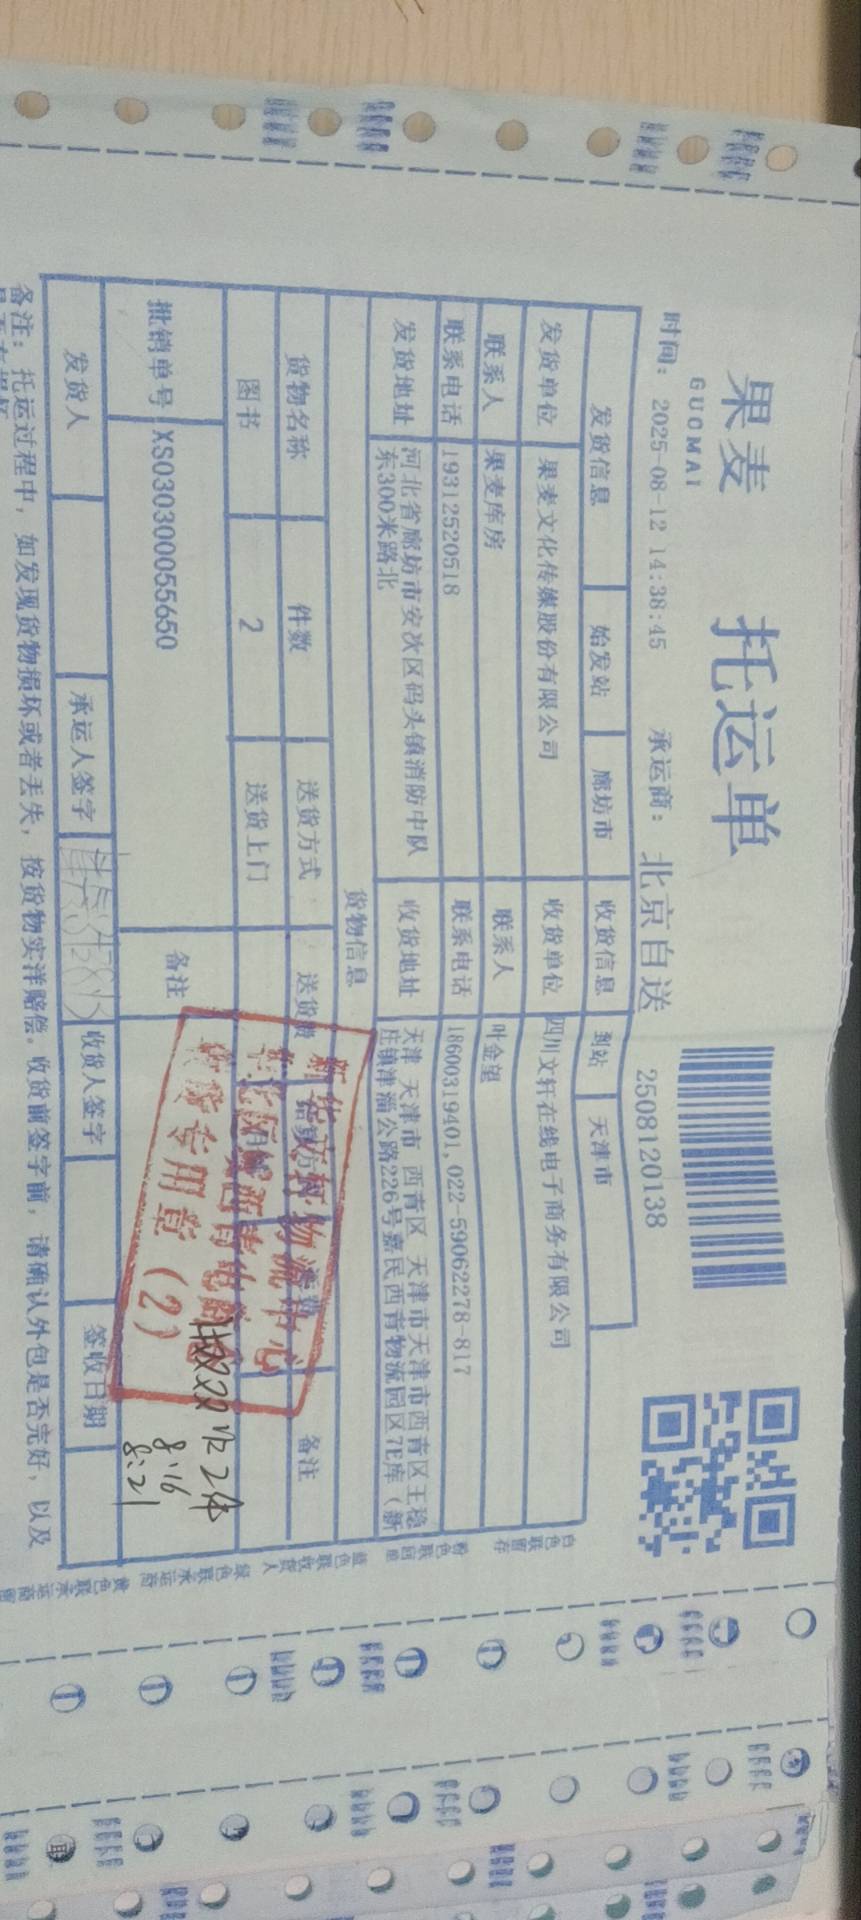 果麦
GUOMAI
托运单
时间: 2025-08-12 14:38:45 承运商: 北京自送 2508120138
发货信息 始发站 廊坊市 收货信息 到站 天津市
发货单位 果麦文化传媒股份有限公司 收货单位 四川文轩在线电子商务有限公司
联系人 果麦库房 联系人 叶金望
联系电话 19312520518 联系电话 18600319401,022-59062278-817
发货地址 河北省廊坊市安次区码头镇消防中队东300米路北 收货地址 天津 天津市 西青区 天津市天津市西青区王稳庄镇津淄公路226号嘉民西青物流园区7E库(新
货物信息
货物名称 件数 送货方式 送货费 备注
图书 2 送货上门
批销单号 XS030300055650 备注
新华文轩物流中心
收货专用章(2)
8:16
8:21
发货人 承运人签字 收货人签字 签收日期
备注: 托运过程中, 如发现货物损坏或者丢失, 按货物实洋赔偿。收货前签字前, 请确认外包是否完好, 以及
白色联留存 粉色联回单 蓝色联收货人 绿色联承运商 黄色联承运商留